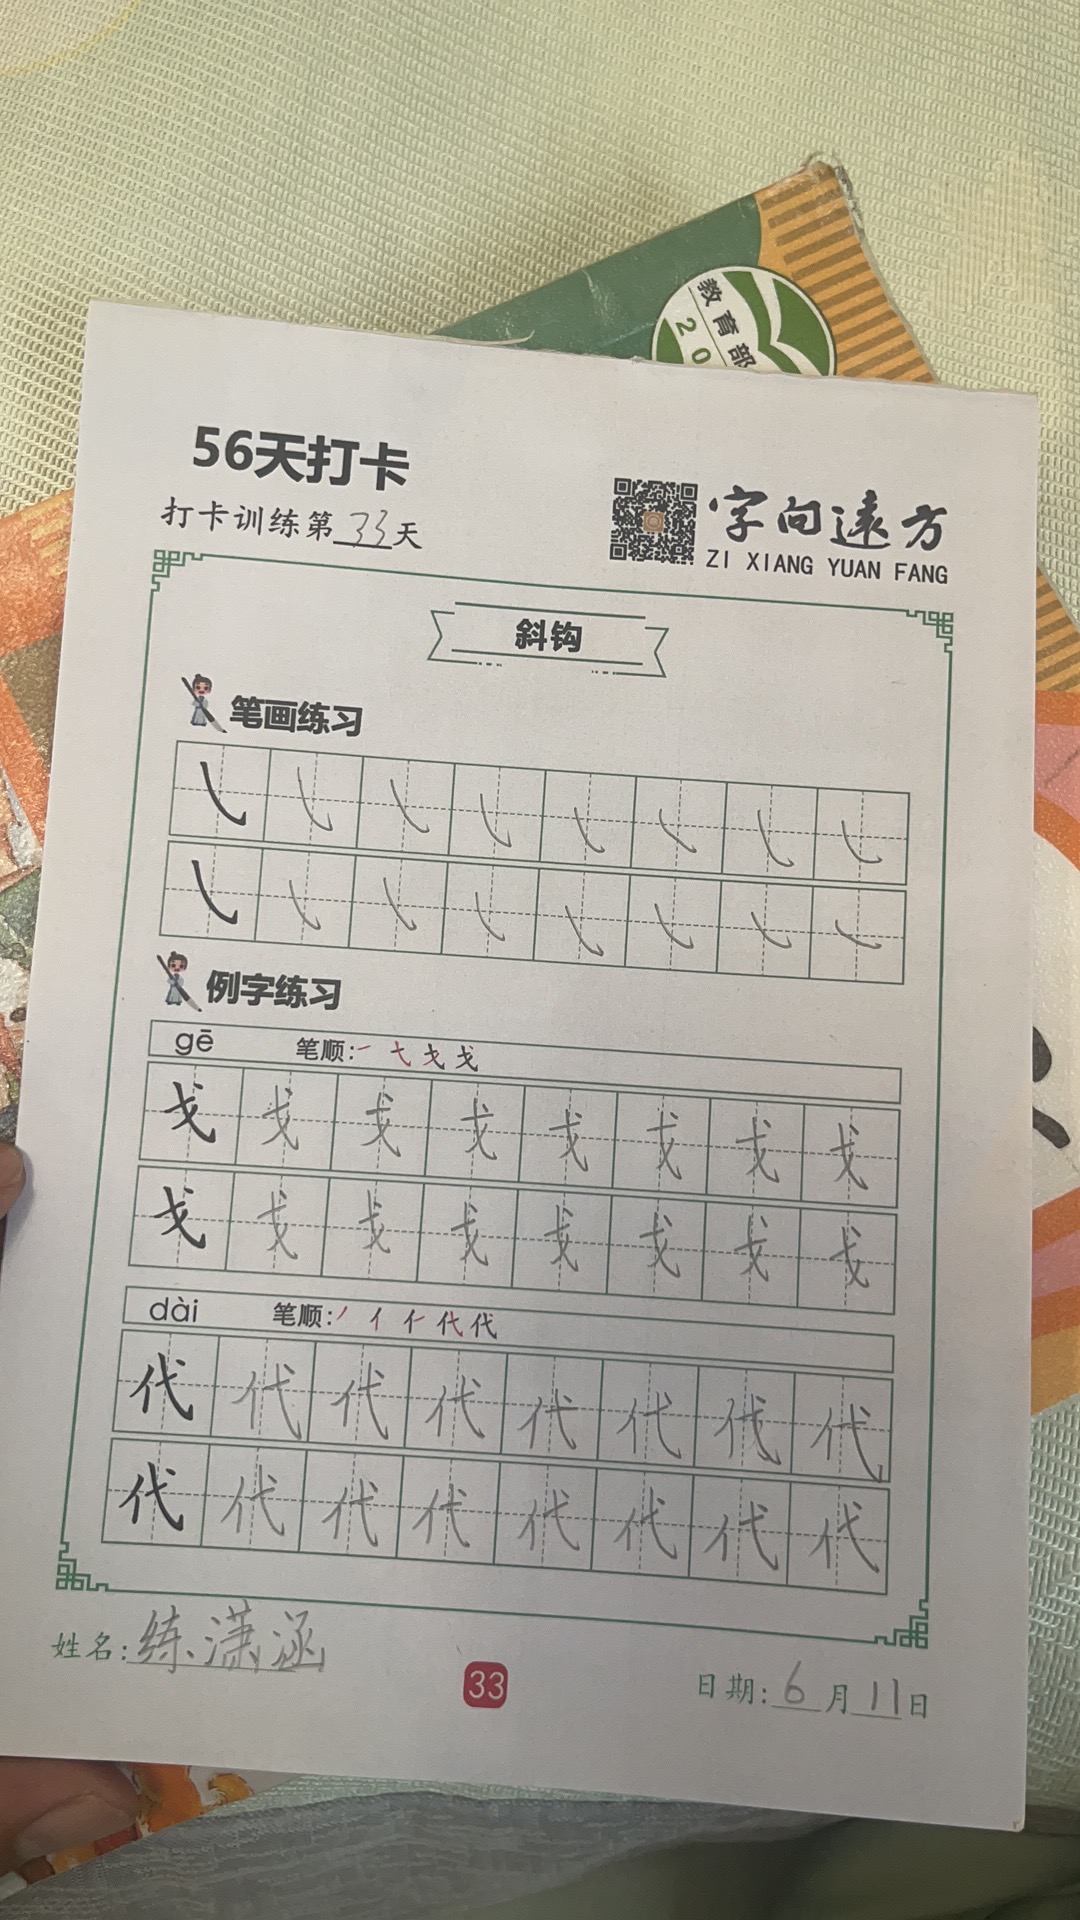 教育部
20
56天打卡
打卡训练第33天
字向远方
ZI XIANG YUAN FANG
斜钩
笔画练习
㇂㇂㇂㇂㇂㇂㇂㇂
㇂㇂㇂㇂㇂㇂㇂㇂
例字练习
gē 笔顺:一 弋 戈 戈
戈戈戈戈戈戈戈戈
戈戈戈戈戈戈戈戈
dài 笔顺:丿 亻 仁 代 代
代代代代代代代代
代代代代代代代代
姓名:练潇涵
33
日期:6月11日